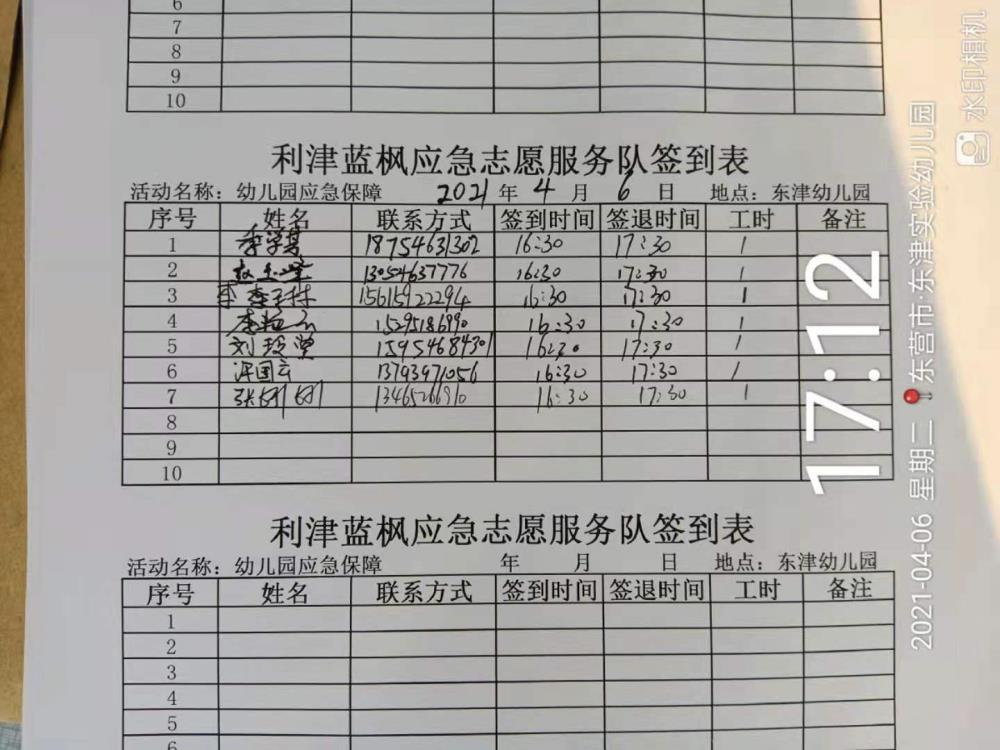 6
7
8
9
10
利津蓝枫应急志愿服务队签到表
活动名称：幼儿园应急保障 2021 年 4 月 6 日 地点：东津幼儿园
序号 姓名 联系方式 签到时间 签退时间 工时 备注
1 18754631302 16:30 17:30 1
2 13054637776 16:30 17:30 1
3 15615922294 16:30 17:30 1
4 15295186990 16:30 17:30 1
5 15954684301 16:30 17:30 1
6 汪国云 13793971056 16:30 17:30 1
7 13465266910 16:30 17:30 1
8
9
10
利津蓝枫应急志愿服务队签到表
活动名称：幼儿园应急保障 年 月 日 地点：东津幼儿园
序号 姓名 联系方式 签到时间 签退时间 工时 备注
1
2
3
4
5
6
17:12
2021-04-06 星期二 东营市·东津实验幼儿园
水印相机